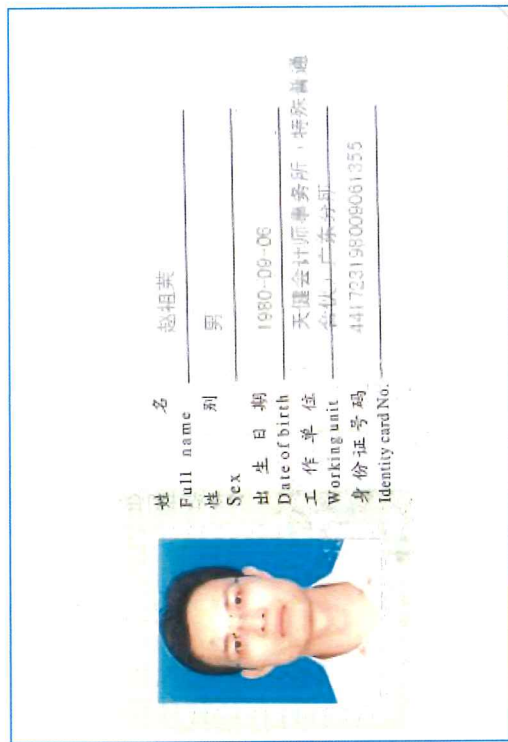 姓 名 赵祖荣
Full name
性 别 男
Sex
出 生 日 期 1980-09-06
Date of birth
工 作 单 位 天健会计师事务所(特殊普通
Working unit 合伙)广东分所
身 份 证 号 码 441723198009061355
Identity card No.